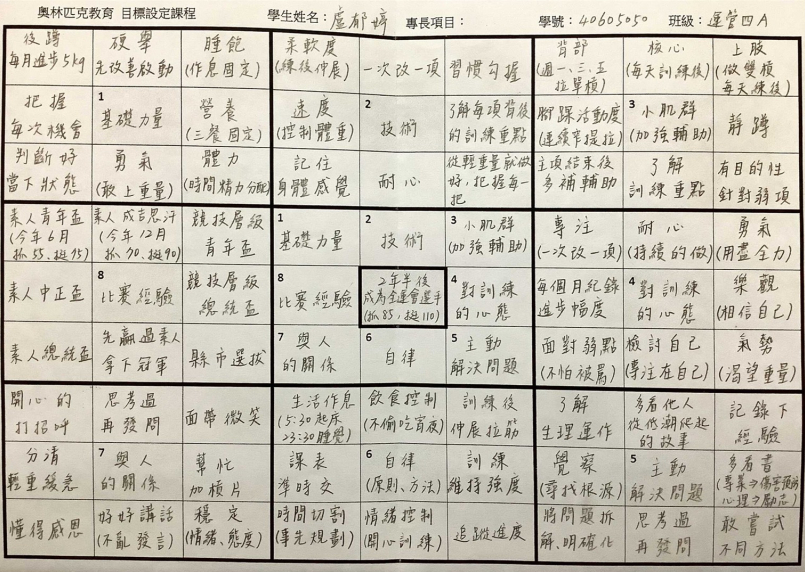 奧林匹克教育 目標設定課程 學生姓名：盧郁婷 專長項目： 學號：40605050 班級：運管四A
後蹲 硬舉 睡飽 柔軟度 一次改一項 習慣勾握 背部 核心 上肢
每月進步5kg 先改善啟動 (作息固定) (練後伸展) (週一、三、五 (每天訓練後) (做雙槓
拉單槓) 每天練後)
把握 1 基礎力量 營養 速度 2 技術 了解每項背後 腳踝活動度 3 小肌群 靜蹲
每次機會 (三餐固定) (控制體重) 的訓練重點 (連續窄提拉) (加強輔助)
判斷好 勇氣 體力 記住 耐心 從輕重量就做 主項結束後 了解 有目的性
當下狀態 (敢上重量) (時間精力分配) 身體感覺 好，把握每一 多補輔助 訓練重點 針對弱項
把
素人青年盃 素人成吉思汗 競技層級 1 基礎力量 2 技術 3 小肌群 專注 耐心 勇氣
(今年6月 (今年12月 青年盃 (加強輔助) (一次改一項) (持續的做) (用盡全力)
抓55、挺75) 抓70、挺90)
素人中正盃 8 比賽經驗 競技層級 8 比賽經驗 2年半後 4 對訓練 每個月紀錄 4 對訓練 樂觀
總統盃 成為全運會選手 的心態 進步幅度 的心態 (相信自己)
(抓85，挺110)
素人總統盃 先贏過素人 縣市選拔 7 與人 6 自律 5 主動 面對弱點 檢討自己 氣勢
拿下冠軍 的關係 解決問題 (不怕被罵) (專注在自己) (渴望重量)
開心的 思考過 面帶微笑 生活作息 飲食控制 訓練後 了解 多看他人 記錄下
打招呼 再發問 (5:30起床 (不偷吃宵夜) 伸展拉筋 生理運作 從低潮爬起 經驗
23:30睡覺) 的故事
分清 7 與人 幫忙 課表 6 自律 訓練 覺察 5 主動 多看書
輕重緩急 的關係 加槓片 準時交 (原則、方法) 維持強度 (尋找根源) 解決問題 (專業→傷害預防
心理→勵志)
懂得感恩 好好講話 穩定 時間切割 情緒控制 追蹤進度 將問題拆 思考過 敢嘗試
(不亂發言) (情緒、態度) (事先規劃) (開心訓練) 解、明確化 再發問 不同方法